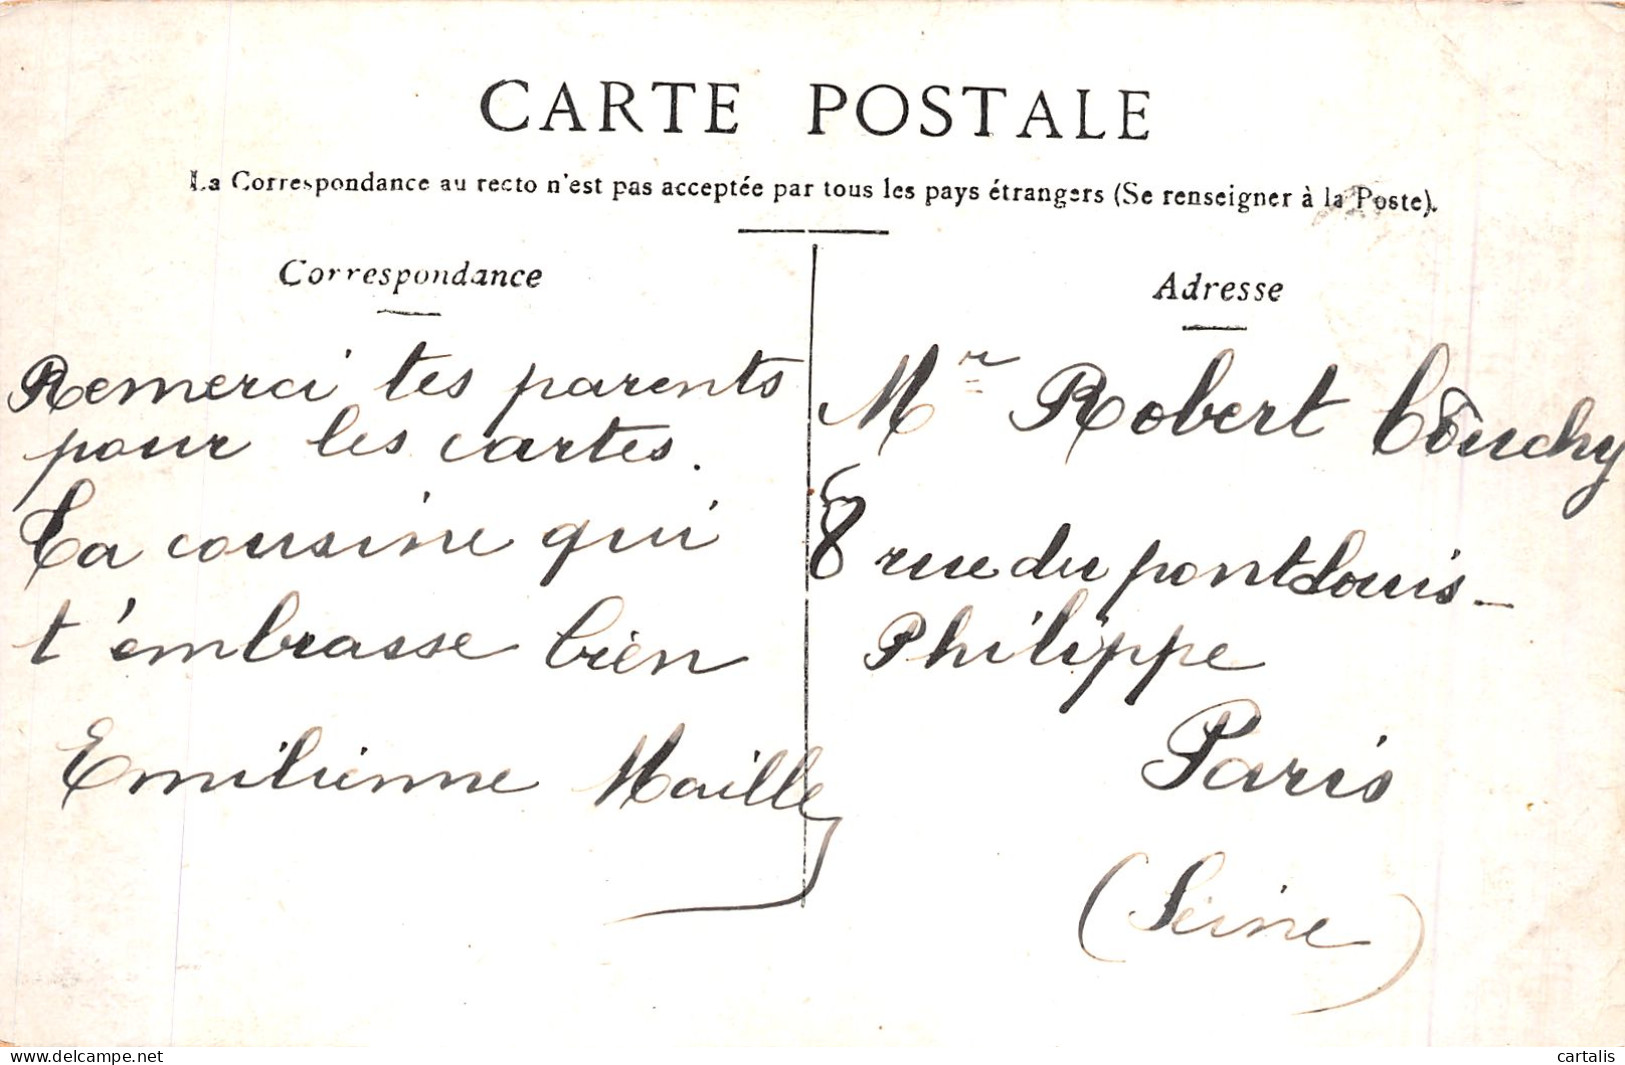 CARTE POSTALE
La Correspondance au recto n'est pas acceptée par tous les pays étrangers (Se renseigner à la Poste).
Correspondance
Remerci tes parents
pour les cartes.
Ta cousine qui
t'embrasse bien
Emilienne Maille
Adresse
Mr Robert
8 rue du pont Louis-
Philippe
Paris
(Seine)
delcampe.net
cartalis